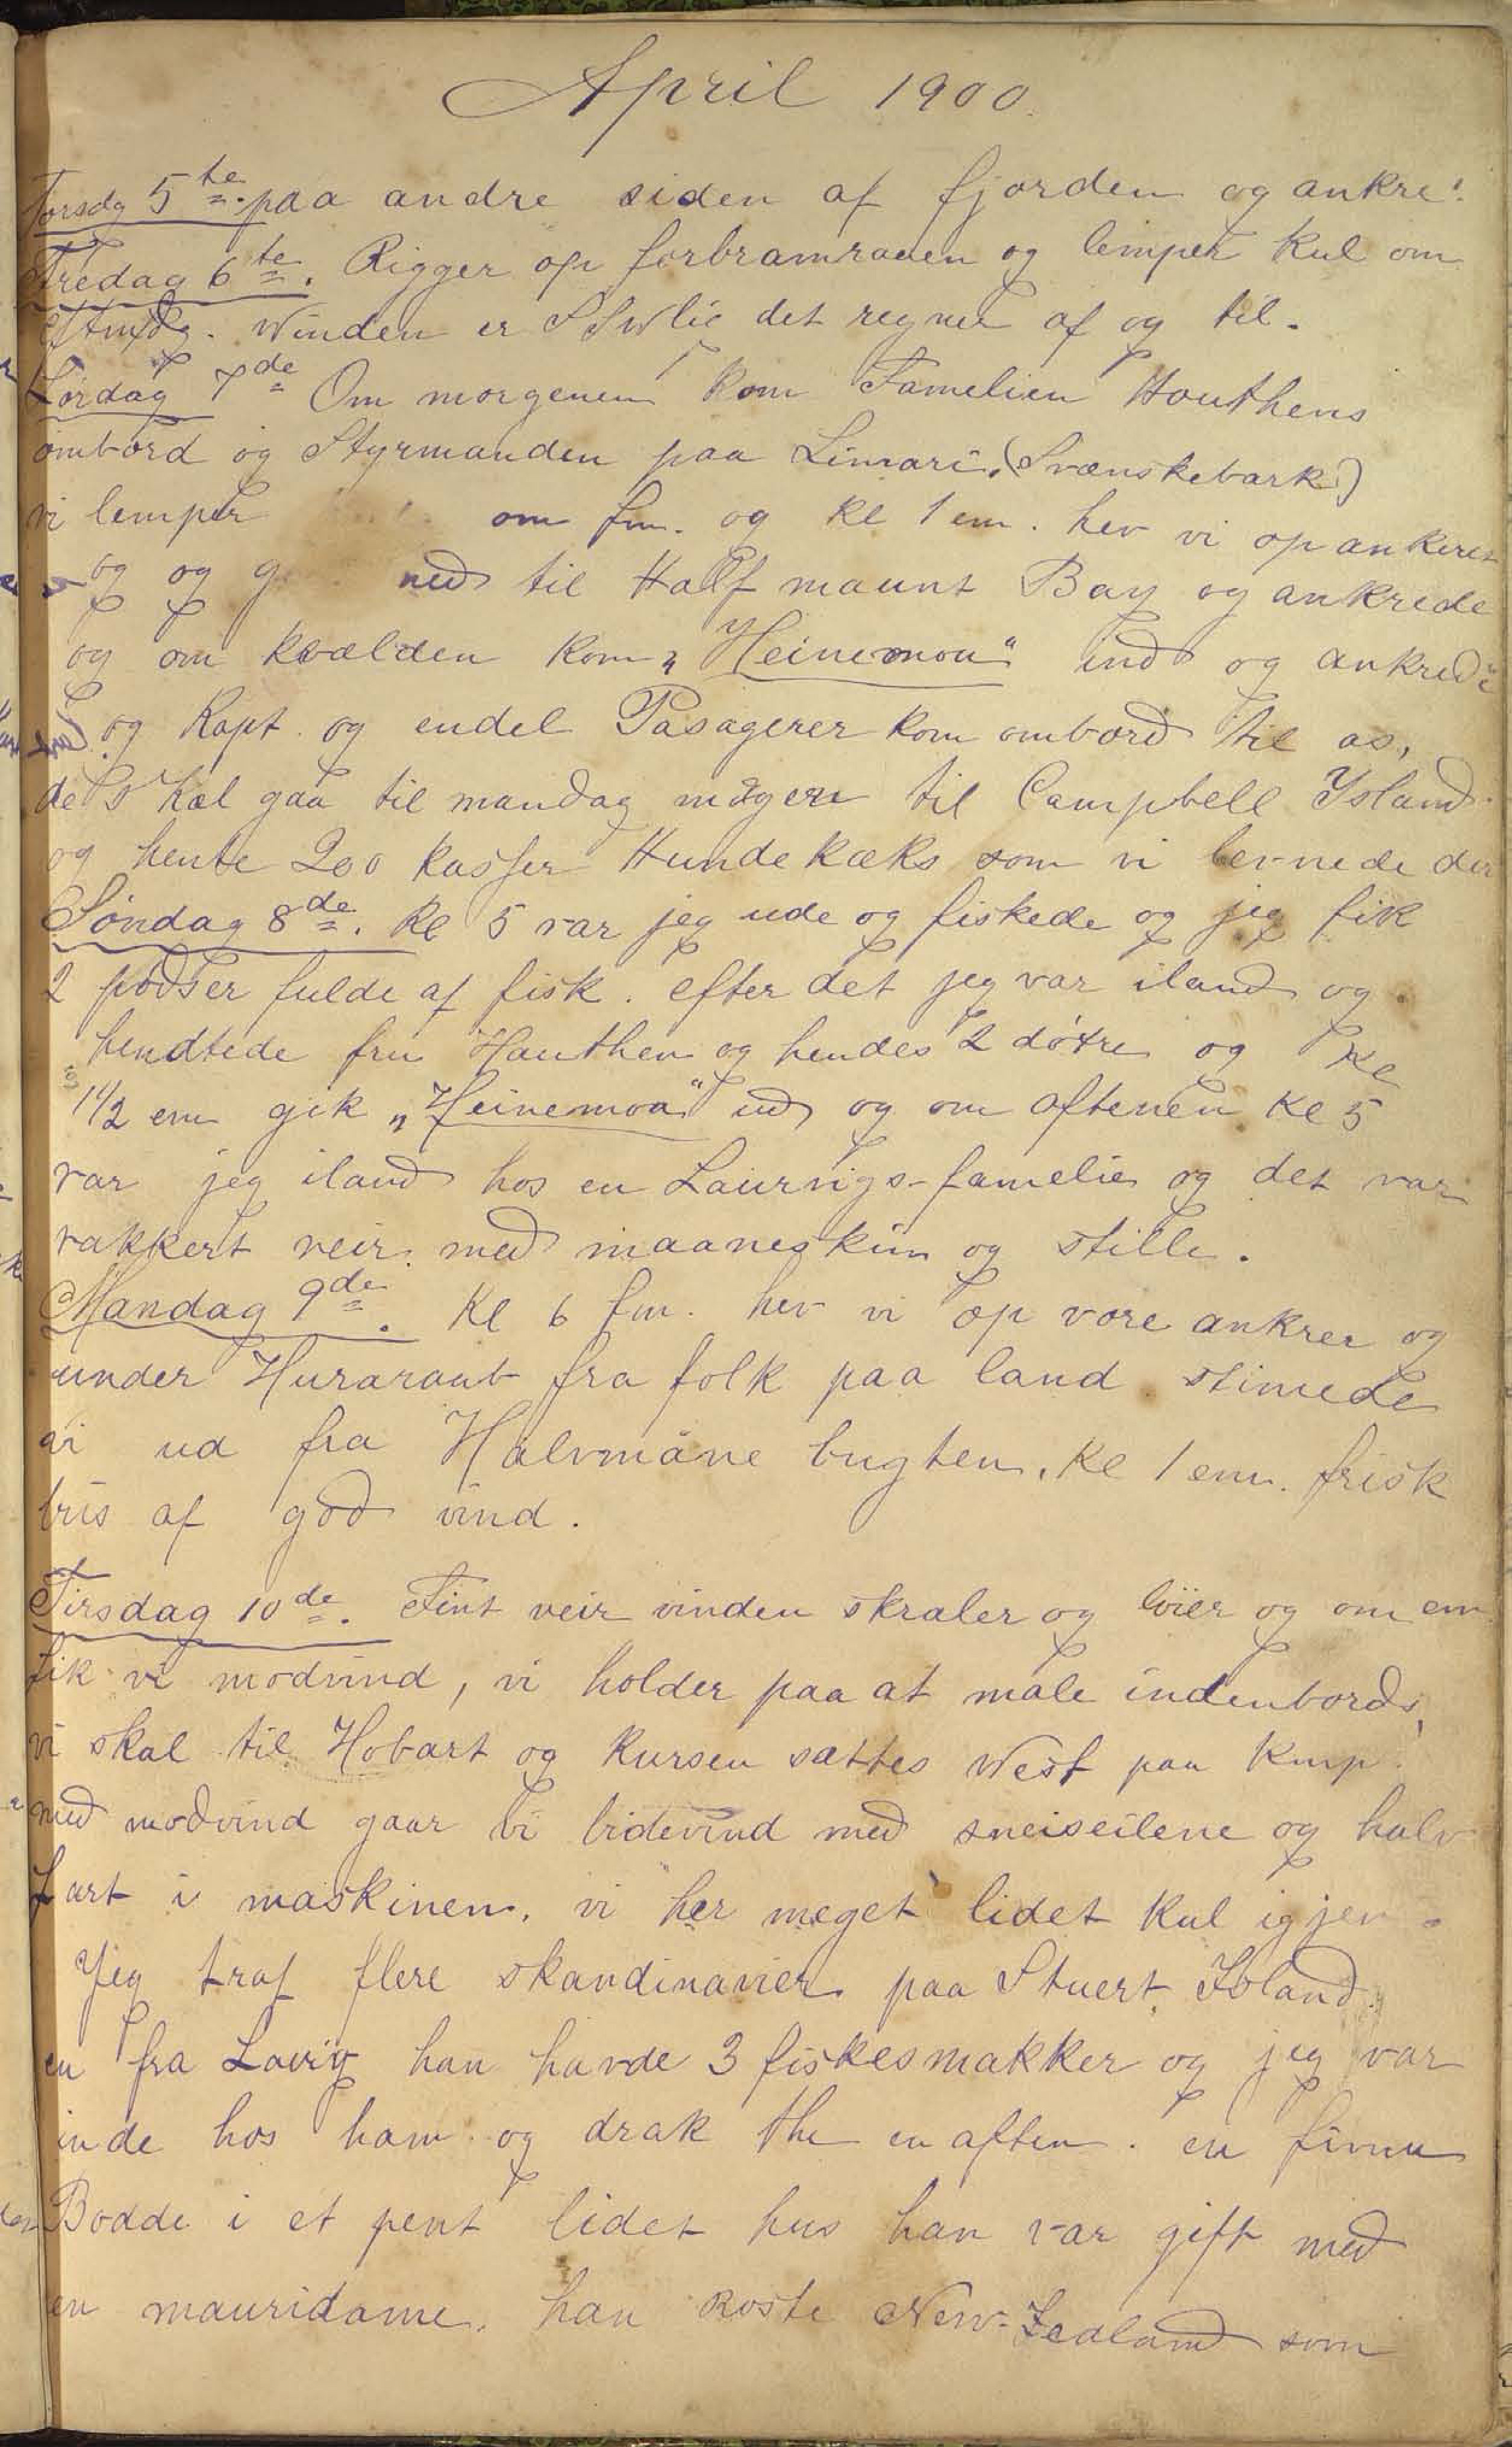 April 1900.
Torsdg 5te paa andre siden af fjorden og ankre.
Fredag 6te. Rigger op forbramraaen og lemper kul om
Eftmdg. Winden er SSWlie det regner af og til.
Lørdag 7de Om morgenen kom Famelien Houthens
ombord og Styrmanden paa Limari. (Svænskebark)
vi lemper om fm. og kl 1 em. hev vi op ankeret
og og g ned til Half maunt Bay og ankrede
og om kvælden kom „Heinemoa“ ind og ankrede
og Kapt. og endel Pasagerer kom ombord til os,
de skal gaa til mandag mõgen til Campbell Island.
og hente 200 kasser Hundekæks som vi levnede der
Søndag 8de. Kl 5 var jeg ude og fiskede og jeg fik
2 pødser fulde af fisk. efter det jeg var iland og
hendtede fru Hauthen og hendes 2 døtre og Kl
1 1/2 em gik „Heinemoa“ ud og om aftenen Kl 5
var jeg iland hos en Laurvigs-famelie og det var
vakkert veir med maaneskin og stille.
Mandag 9de. Kl 6 fm. hev vi op vore ankrer og
under Huraraab fra folk paa land stimede
vi ud fra Halvmåne bugten. Kl 1 em. frisk
bris af god vind.
Tirsdag 10de. Fint veir vinden skraler og løier og om em.
fik vi modvind, vi holder paa at male indenbords,
vi skal til Hobart og kursen sættes West paa Kmp.
med modvind gaar vi bidevind med sneiseilene og halv
fart i maskinen. vi her meget lidet kul igjen.
Jeg traf flere skandinavier paa Stuert Island.
en fra Laurvig han havde 3 fiskesmakker og jeg var
inde hos ham og drak the en aften. en finn
Bodde i et pent lidet hus han var gift med
en mauridame. han roste New-Zealand som